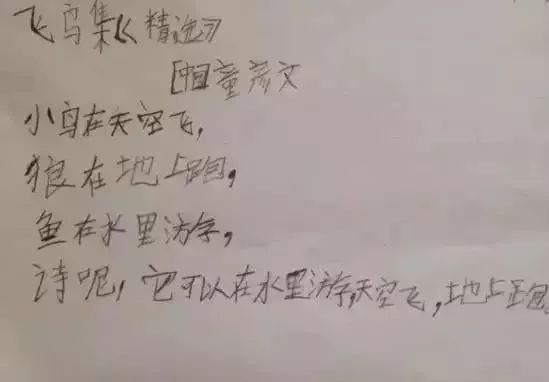 飞鸟集《精选》
[中国]童彦文
小鸟在天空飞,
狼在地上跑,
鱼在水里游字,
诗呢,它可以在水里游字,天空飞,地上跑。